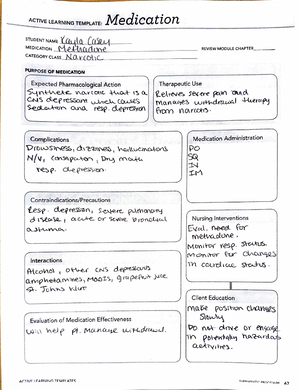 ACTIVE LEARNING TEMPLATE: Medication
STUDENT NAME Kayla Casey
MEDICATION Methadone
REVIEW MODULE CHAPTER
CATEGORY CLASS Narcotic
PURPOSE OF MEDICATION
Expected Pharmacological Action
Synthetic narcotic that is a
CNS depressant which causes
sedation and resp. depression
Therapeutic Use
Relieves severe pain and
manages withdrawal therapy
from narcotics.
Complications
Drowsiness, dizziness, hallucinations
N/V, constipation, Dry mouth
resp. depression
Medication Administration
PO
SQ
IV
IM
Contraindications/Precautions
Resp. depression, severe pulmonary
disease, acute or severe bronchial
asthma.
Nursing Interventions
Eval. need for
methadone.
Monitor resp. status.
Monitor for changes
in cardiac status.
Interactions
Alcohol, other CNS depressants
amphetamines, MAOIs, grapefruit juice
St. Johns Wort
Client Education
Make position changes
slowly
Do not drive or engage
in potentially hazardous
activities.
Evaluation of Medication Effectiveness
Will help pt. manage withdrawal.
ACTIVE LEARNING TEMPLATES
A7